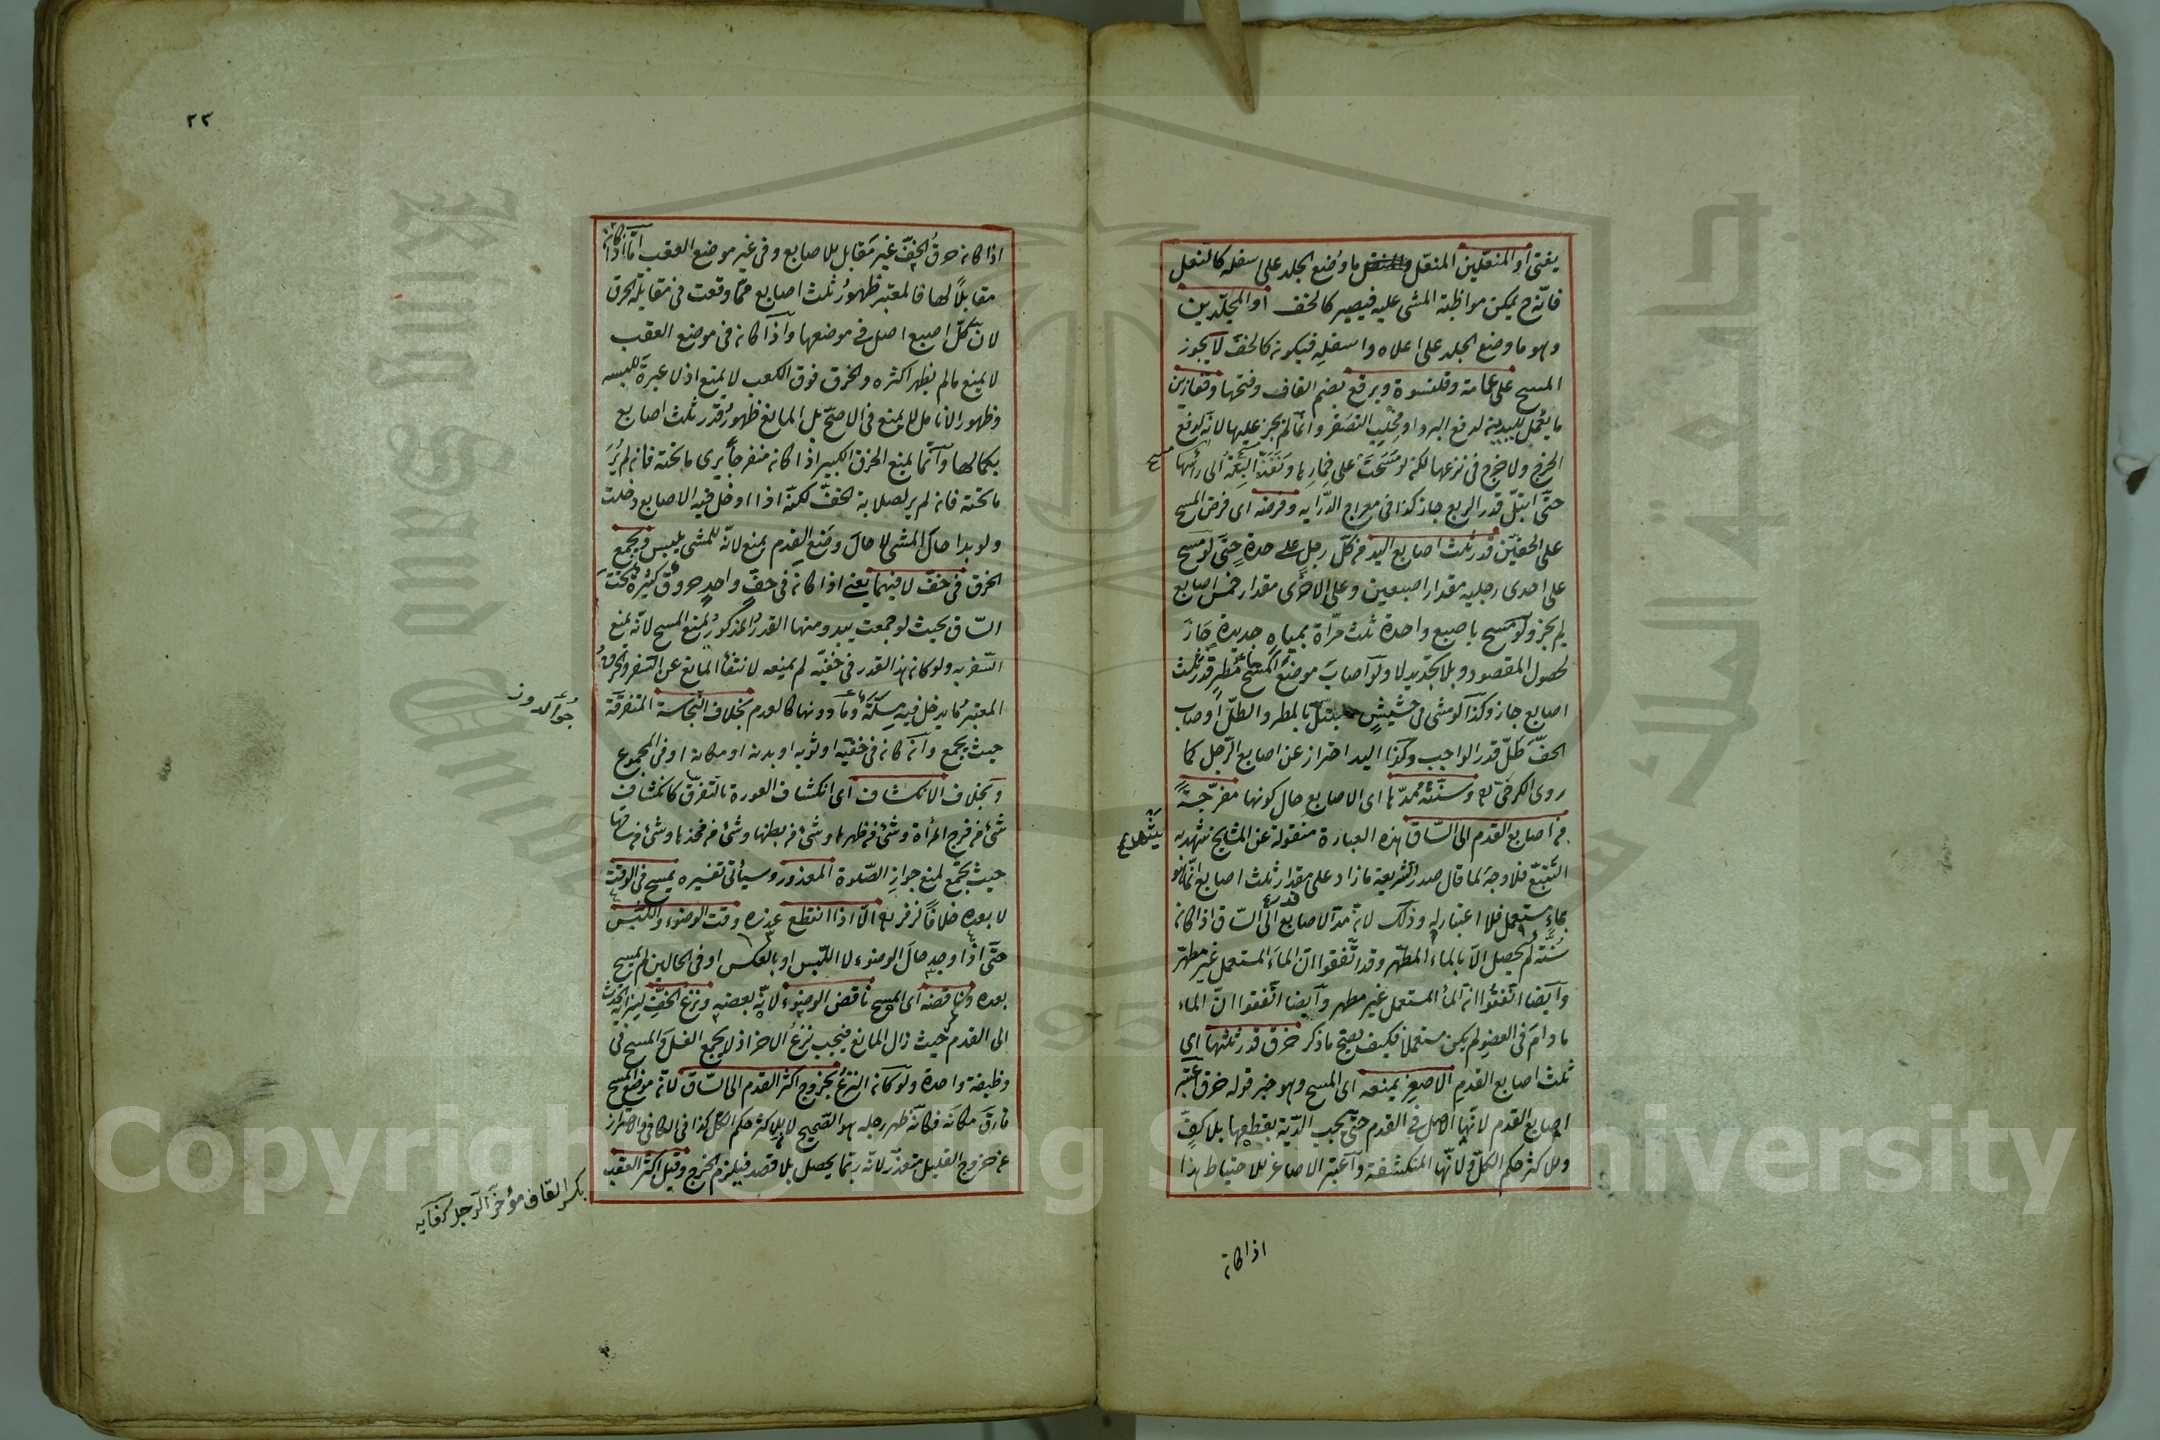 يفتى او المنعلين المنعل ما وضع الجلد على اسفله كالنعل
فانه ح يمكن مواظبة المشى عليه فيصير كالخف او المجلدين
وهو ما وضع الجلد على اعلاه واسفله فيكون كالخف لا يجوز
المسح على عمامة وقلنسوة وبرقع بضم القاف وفتحها وقفازين
ما يعمل لليدين لدفع البرد او مخلب الصقر وانما لم يجز عليها لانه لدفع
الحرج ولا حرج فى نزعها لكن لو مسحت على خمارها ونفذت البلة الى رأسها
حتى ابتل قدر الربع جاز كذا فى معراج الدراية وفرضه اى فرض المسح
على الخفين قدر ثلث اصابع اليد من كل رجل على حدة حتى لو مسح
على احدى رجليه مقدار اصبعين وعلى الاخرى مقدار خمس اصابع
لم يجز ولو مسح باصبع واحدة ثلث مرات بمياه جديدة جاز
لحصول المقصود وبلا تجديد لا ولو اصاب موضع المسح ماء مطر قدر ثلث
اصابع جاز وكذا لو مشى فى حشيش مبتل بالمطر والطل او صاب
الخف طل قدر الواجب وكذا اليد احتراز عن اصابع الرجل كما
روى الكرخى وسنته مدها اى الاصابع حال كونها مفرجة
من اصابع القدم الى الساق هذه العبارة منقولة عن المشايخ شهد به
التتبع فلا وجه لما قال صدر الشريعة ما زاد على مقدار ثلث اصابع انما هو
بماء مستعمل فلا اعتبار له وذلك لانه مد الاصابع الى الساق اذا كان
سنة لم يحصل الا بالماء المطهر وقد اتفقوا ان الماء المستعمل غير مطهر
وايضا اتفقوا ان الماء المستعمل غير مطهر وايضا اتفقوا ان الماء
ما دام فى العضو لم يكن مستعملا فكيف يصح ما ذكر خرق قدر ثلثها اى
ثلث اصابع القدم الاصغر يمنعه اى المسح وهو خبر قوله خرق اعتبر
اصابع القدم لانها الاصل فى القدم حتى تجب الدية بقطعها بلا كف
وللاكثر حكم الكل ولانها المنكشفة واعتبر الاصاغر للاحتياط هذا
اذا كان
مسح
٢٢
اذا كان خرق الخف غير مقابل للاصابع وفى غير موضع العقب اما اذا كان
مقابلا لها فالمعتبر ظهور ثلث اصابع مما وقعت فى مقابلة الخرق
لان كل اصبع اصل فى موضعها واذا كان فى موضع العقب
لا يمنع ما لم يظهر اكثره والخرق فوق الكعب لا يمنع اذ لا عبرة للبسه
وظهور الانامل لا يمنع فى الاصح بل المانع ظهور قدر ثلث اصابع
بكمالها وانما يمنع الخرق الكبير اذا كان منفرجا يرى ما تحته فان لم ير
ما تحته فان لم ير لصلابة الخف لكنه اذا ادخل فيه الاصابع دخلت
ولو بدا حال المشى لا حال وضع القدم يمنع لانه للمشى يلبس ويجمع
الخرق فى خف لا فيهما يعنى اذا كان فى خف واحد خروق كثيرة تحت
الساق بحيث لو جمعت يبدو منها القدر المذكور يمنع المسح لانه يمنع
السفر به ولو كان هذا القدر فى خفيه لم يمنعه لانتفاء المانع عن السفر والخرق
المعتبر ما يدخل فيه مسلة وما دونها كالعدم بخلاف النجاسة المتفرقة
حيث يجمع وان كان فى خفيه او ثوبه او بدنه او مكانه او فى المجموع
وبخلاف الانكشاف اى انكشاف العورة بالتفرق كانكشاف
شئ من فرج المرأة وشئ من ظهرها وشئ من بطنها وشئ من فخذها وشئ من ساقها
حيث يجمع لمنع جواز الصلوة المعذور وسيأتى تفسيره يمسح فى الوقت
لا بعده خلافا لزفر الا اذا انقطع عذره وقت الوضوء واللبس
حتى اذا وجد حال الوضوء لا اللبس او بالعكس او فى الحالين لم يمسح
بعده وناقضه اى المسح ناقض الوضوء لانه بعضه ونزع الخف لسراية الحدث
الى القدم حيث زال المانع فيجب نزع الآخر اذ لا يجمع الغسل والمسح فى
وظيفة واحدة ولو كان النزع بخروج اكثر القدم الى الساق لان موضع المسح
فارق مكانه فكانه ظهر رجله هو الصحيح لان للاكثر حكم الكل كذا فى الكافى والاحتراز
عن خروج القليل متعذر لانه ربما يحصل بلا قصد فيلزم الحرج وقيل اكثر العقب
جوالدوز
بكسر القاف مؤخر الرجل كفايه
Copyright © King Saud University